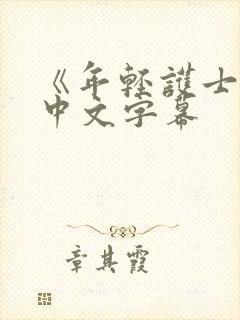 《年轻護士
中文字幕
章其霞